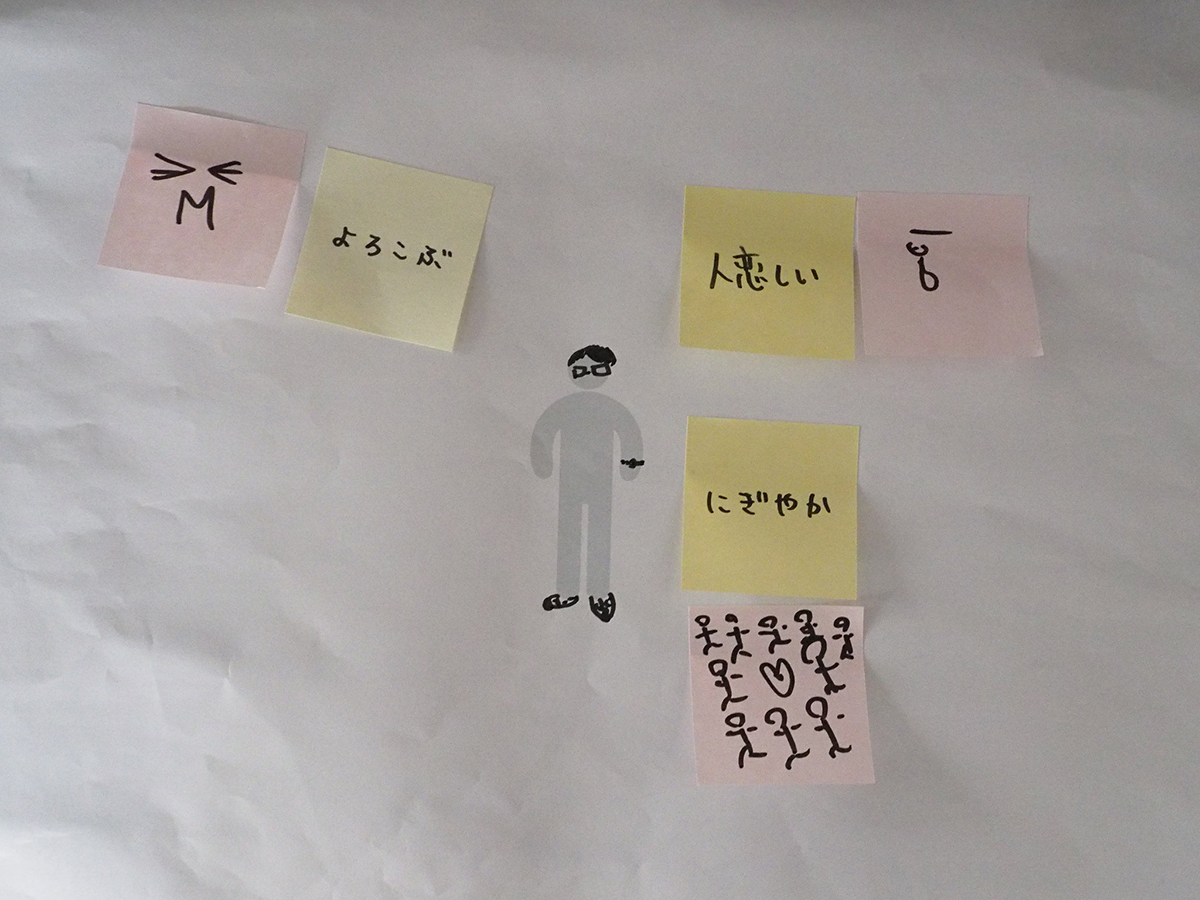 よろこぶ
人恋しい
にぎやか